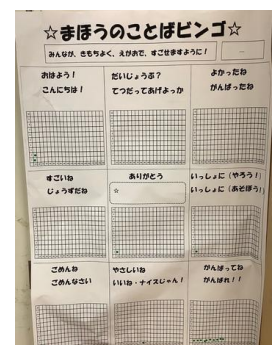 ☆まほうのことばビンゴ☆
みんなが、きもちよく、えがおで、すごせますように！
おはよう！
こんにちは！
だいじょうぶ？
てつだってあげよっか
よかったね
がんばったね
すごいね
じょうずだね
ありがとう
☆
いっしょに（やろう！）
いっしょに（あそぼう！）
ごめんね
ごめんなさい
やさしいね
いいね・ナイスじゃん！
がんばってね
がんばれ！！